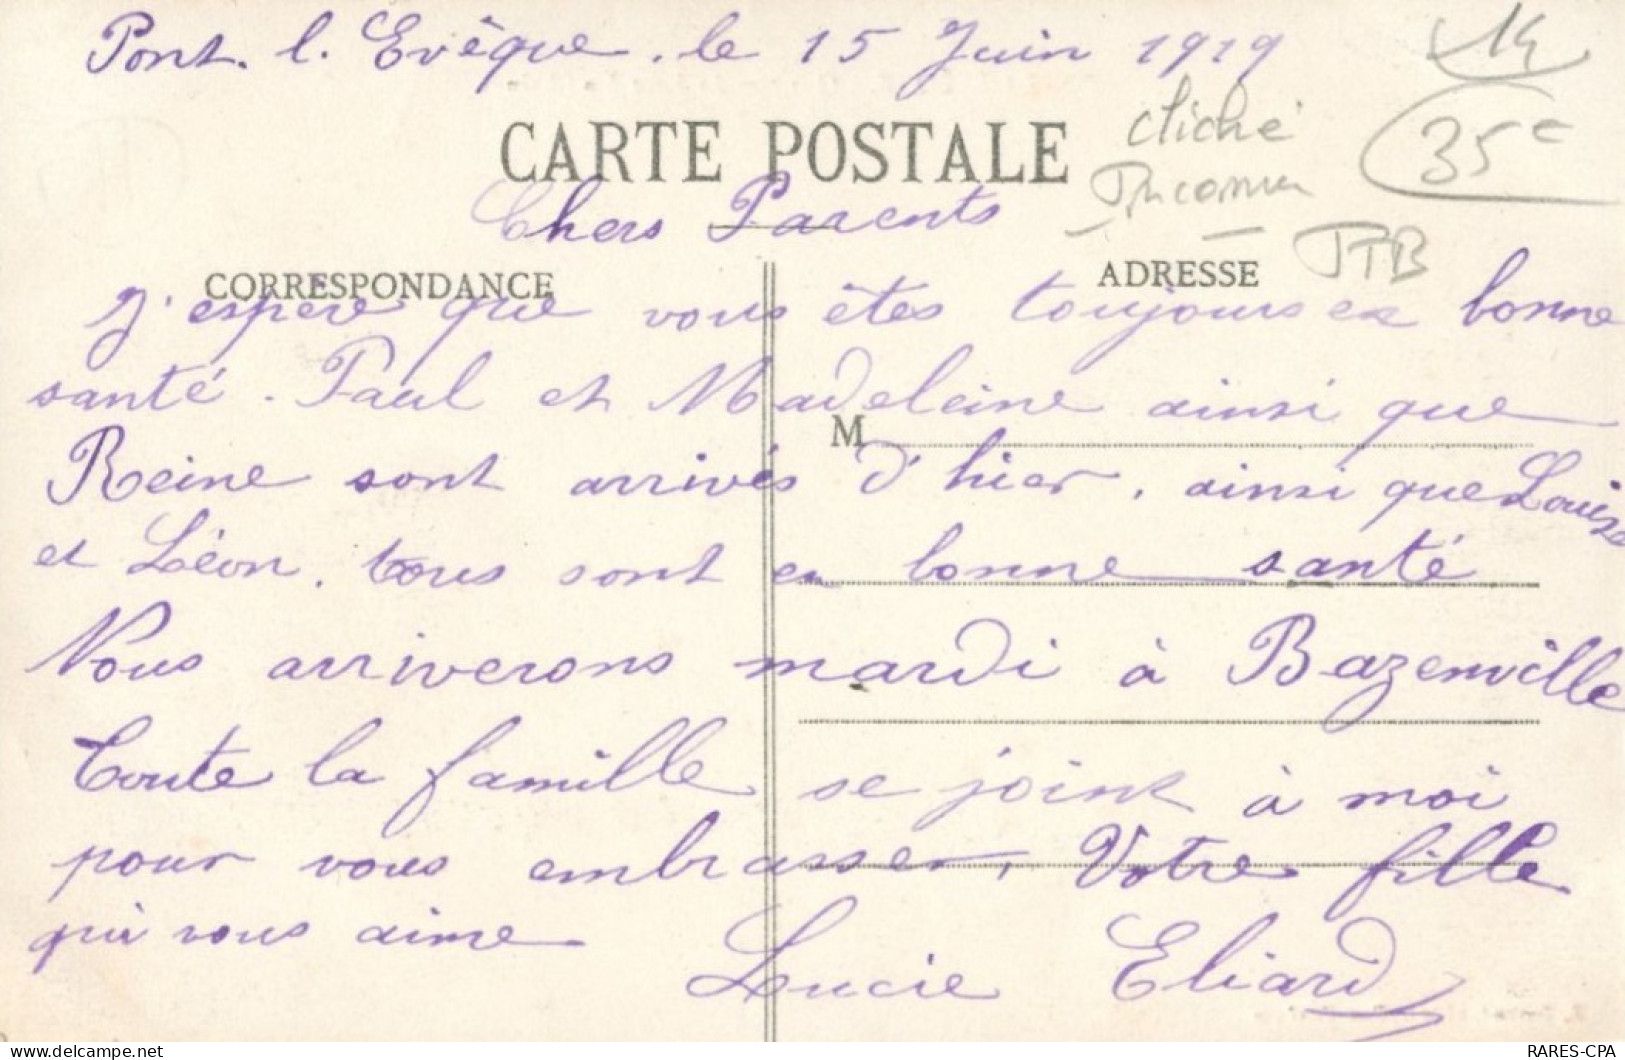 Pont. l. Evêque. le 15 Juin 1919
14
cliché
35€
CARTE POSTALE
Inconnu
Chers Parents
TTB
CORRESPONDANCE
ADRESSE
J'espère que vous êtes toujours en bonne
santé. Paul et Madeleine ainsi que
M
Reine sont arrivés d'hier, ainsi que Louise
et Léon. tous sont en bonne santé
Nous arriverons mardi à Bazenville
Toute la famille se joint à moi
pour vous embrasser, Votre fille
qui vous aime
Lucie Eliard
RARES-CPA